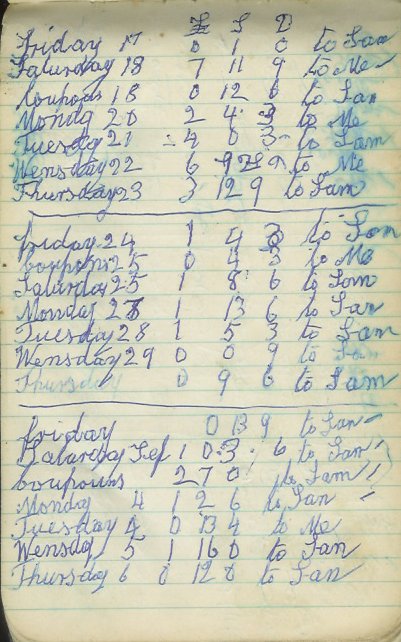 £ S D
Friday 17 0 1 0 to Sam
Saturday 18 7 11 9 to Me
Coupons 18 0 12 6 to Sam
Mondg 20 2 4 3 to Me
Tuesdg 21 4 0 3 to Sam
Wensday 22 6 9 to Me
Thursday 23 3 12 9 to Sam
friday 24 1 4 3 to Som
Coupons 25 0 4 3 to Me
Saturday 25 1 8 6 to Som
Monday 27 1 13 6 to Sar
Tuesday 28 1 5 3 to San
Wensday 29 0 0 9 to San
Thursday 0 9 6 to Sam
friday 0 13 9 to San
Saturday Sep 1 0 3 6 to San
Coupouns 2 7 0 to Sam
Monday 4 1 2 6 to San
Tuesday 4 0 13 4 to Me
Wensdg 5 1 16 0 to San
Thursdg 6 0 12 8 to San